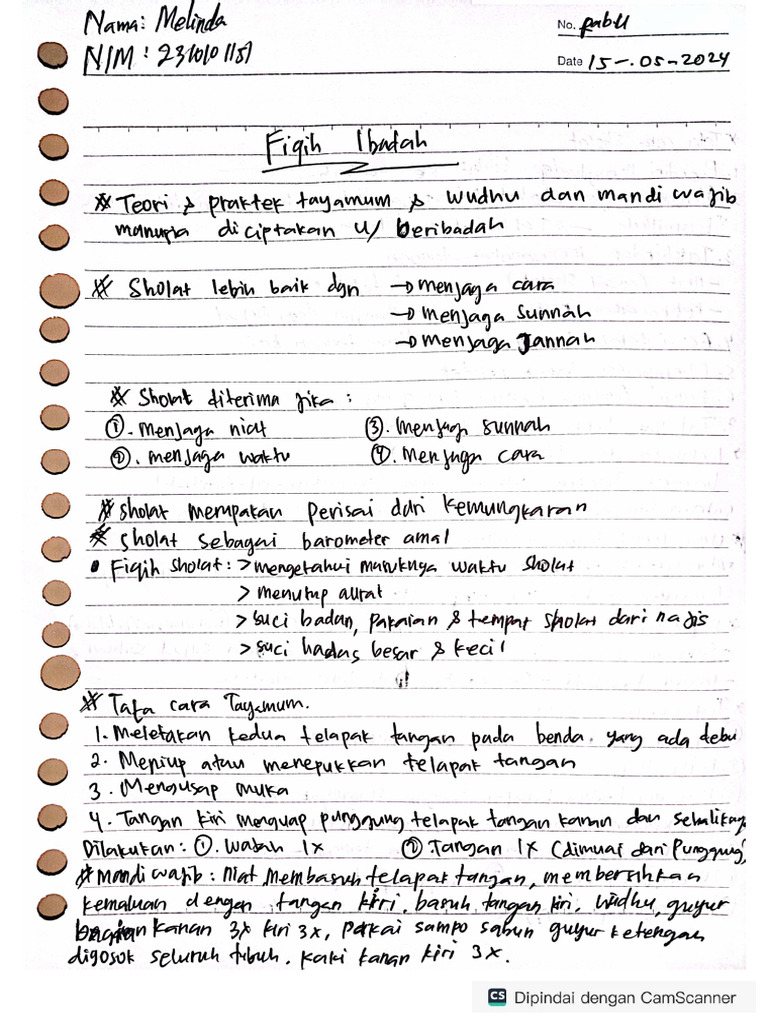 Nama: Melinda
No. Rabu
NIM : 2310101151
Date 15-.05-2024
Fiqih Ibadah
* Teori & praktek tayamum & wudhu dan mandi wajib
manusia diciptakan u/ beribadah
* Sholat lebih baik dgn → menjaga cara
→ menjaga sunnah
→ menjaga Jannah
* Sholat diterima jika :
①. menjaga niat ③. menjaga sunnah
②. menjaga waktu ④. menjaga cara
* sholat merupakan perisai dari kemungkaran
* sholat sebagai barometer amal
• Fiqih sholat : > mengetahui masuknya waktu sholat
> menutup aurat
> suci badan, pakaian & tempat sholat dari najis
> suci hadas besar & kecil
* Tata cara Tayamum.
1. Meletakan kedua telapak tangan pada benda yang ada debu
2. Meniup atau menepukkan telapak tangan
3. Mengusap muka
4. Tangan kiri mengusap punggung telapak tangan kanan dan sebalikny
Dilakukan : ①. Wajah 1x ② Tangan 1x (dimulai dari punggung)
* Mandi wajib : Niat membasuh telapak tangan, membersihkan
kemaluan dengan tangan kiri. basuh tangan kiri, wudhu, guyur
bagian kanan 3x kiri 3x, pakai sampo sabun guyur ketengah
digosok seluruh tubuh. kaki kanan kiri 3x.
CS Dipindai dengan CamScanner